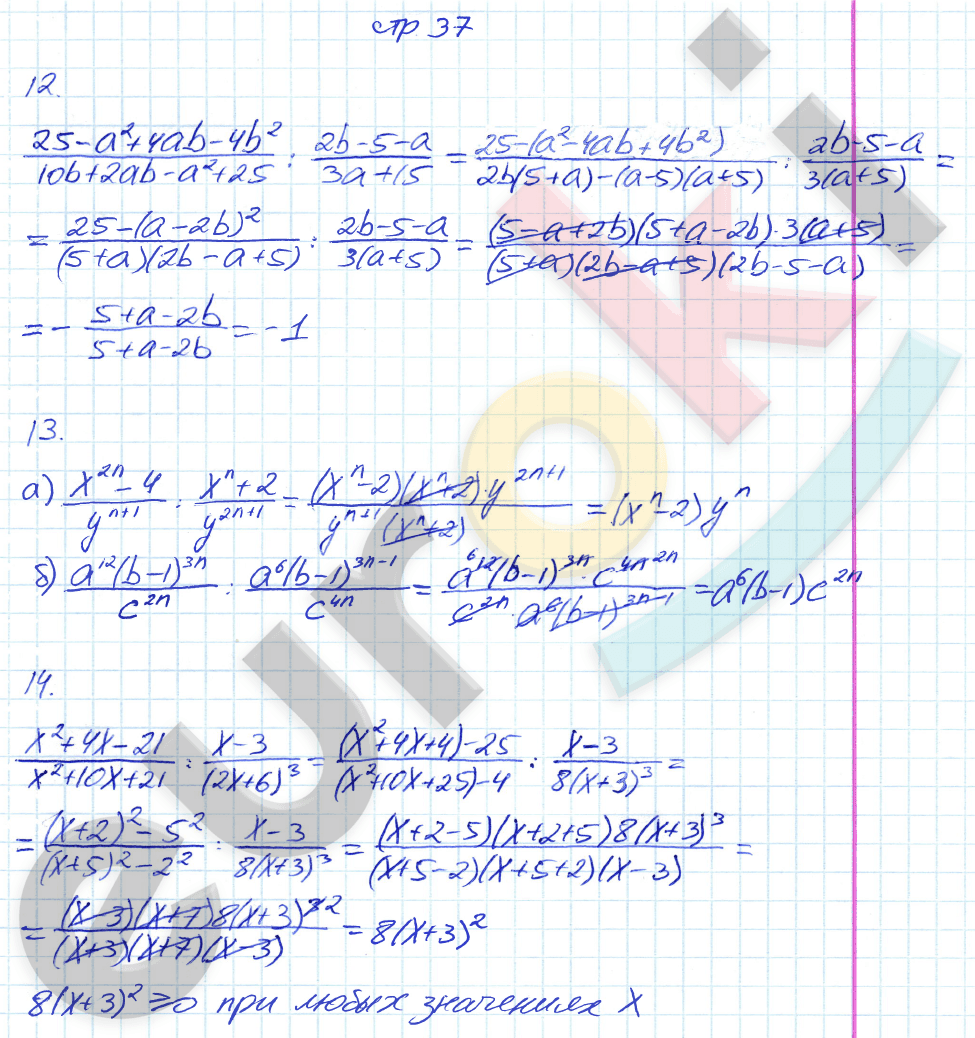 стр. 37
12.
(25-a²+4ab-4b²)/(10b+2ab-a²+25) : (2b-5-a)/(3a+15) = (25-(a²-4ab+4b²))/(2b(5+a)-(a-5)(a+5)) : (2b-5-a)/(3(a+5)) =
= (25-(a-2b)²)/((5+a)(2b-a+5)) : (2b-5-a)/(3(a+5)) = ((5-a+2b)(5+a-2b)·3(a+5))/((5+a)(2b-a+5)(2b-5-a)) =
= - (5+a-2b)/(5+a-2b) = -1
13.
а) (x²ⁿ-4)/(yⁿ⁺¹) : (xⁿ+2)/(y²ⁿ⁺¹) = ((xⁿ-2)(xⁿ+2)·y²ⁿ⁺¹)/(yⁿ⁺¹(xⁿ+2)) = (xⁿ-2)yⁿ
б) (a¹²(b-1)³ⁿ)/(c²ⁿ) : (a⁶(b-1)³ⁿ⁻¹)/(c⁴ⁿ) = (⁶a¹²(b-1)³ⁿ·c⁴ⁿ ²ⁿ)/(c²ⁿ·a⁶(b-1)³ⁿ⁻¹) = a⁶(b-1)c²ⁿ
14.
(x²+4x-21)/(x²+10x+21) : (x-3)/((2x+6)³) = ((x²+4x+4)-25)/((x²+10x+25)-4) : (x-3)/(8(x+3)³) =
= ((x+2)²-5²)/((x+5)²-2²) : (x-3)/(8(x+3)³) = ((x+2-5)(x+2+5)8(x+3)³)/((x+5-2)(x+5+2)(x-3)) =
= ((x-3)(x+7)8(x+3)³ ²)/((x+3)(x+7)(x-3)) = 8(x+3)²
8(x+3)² ⩾ 0 при любых значениях x
euroki